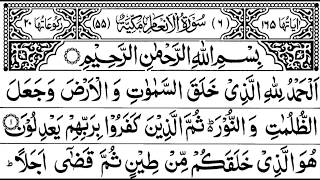 اٰیاتها ۱۶۵ (۶) سُوْرَةُ الْاَنْعَامِ مَكِّيَّةٌ (۵۵) رکوعاتها ۲۰
بِسْمِ اللهِ الرَّحْمٰنِ الرَّحِيْمِ
اَلْحَمْدُ لِلّٰهِ الَّذِیْ خَلَقَ السَّمٰوٰتِ وَ الْاَرْضَ وَ جَعَلَ
الظُّلُمٰتِ وَ النُّوْرَ ؕ ثُمَّ الَّذِیْنَ كَفَرُوْا بِرَبِّهِمْ یَعْدِلُوْنَ ۱
هُوَ الَّذِیْ خَلَقَكُمْ مِّنْ طِیْنٍ ثُمَّ قَضٰۤی اَجَلًا ؕ